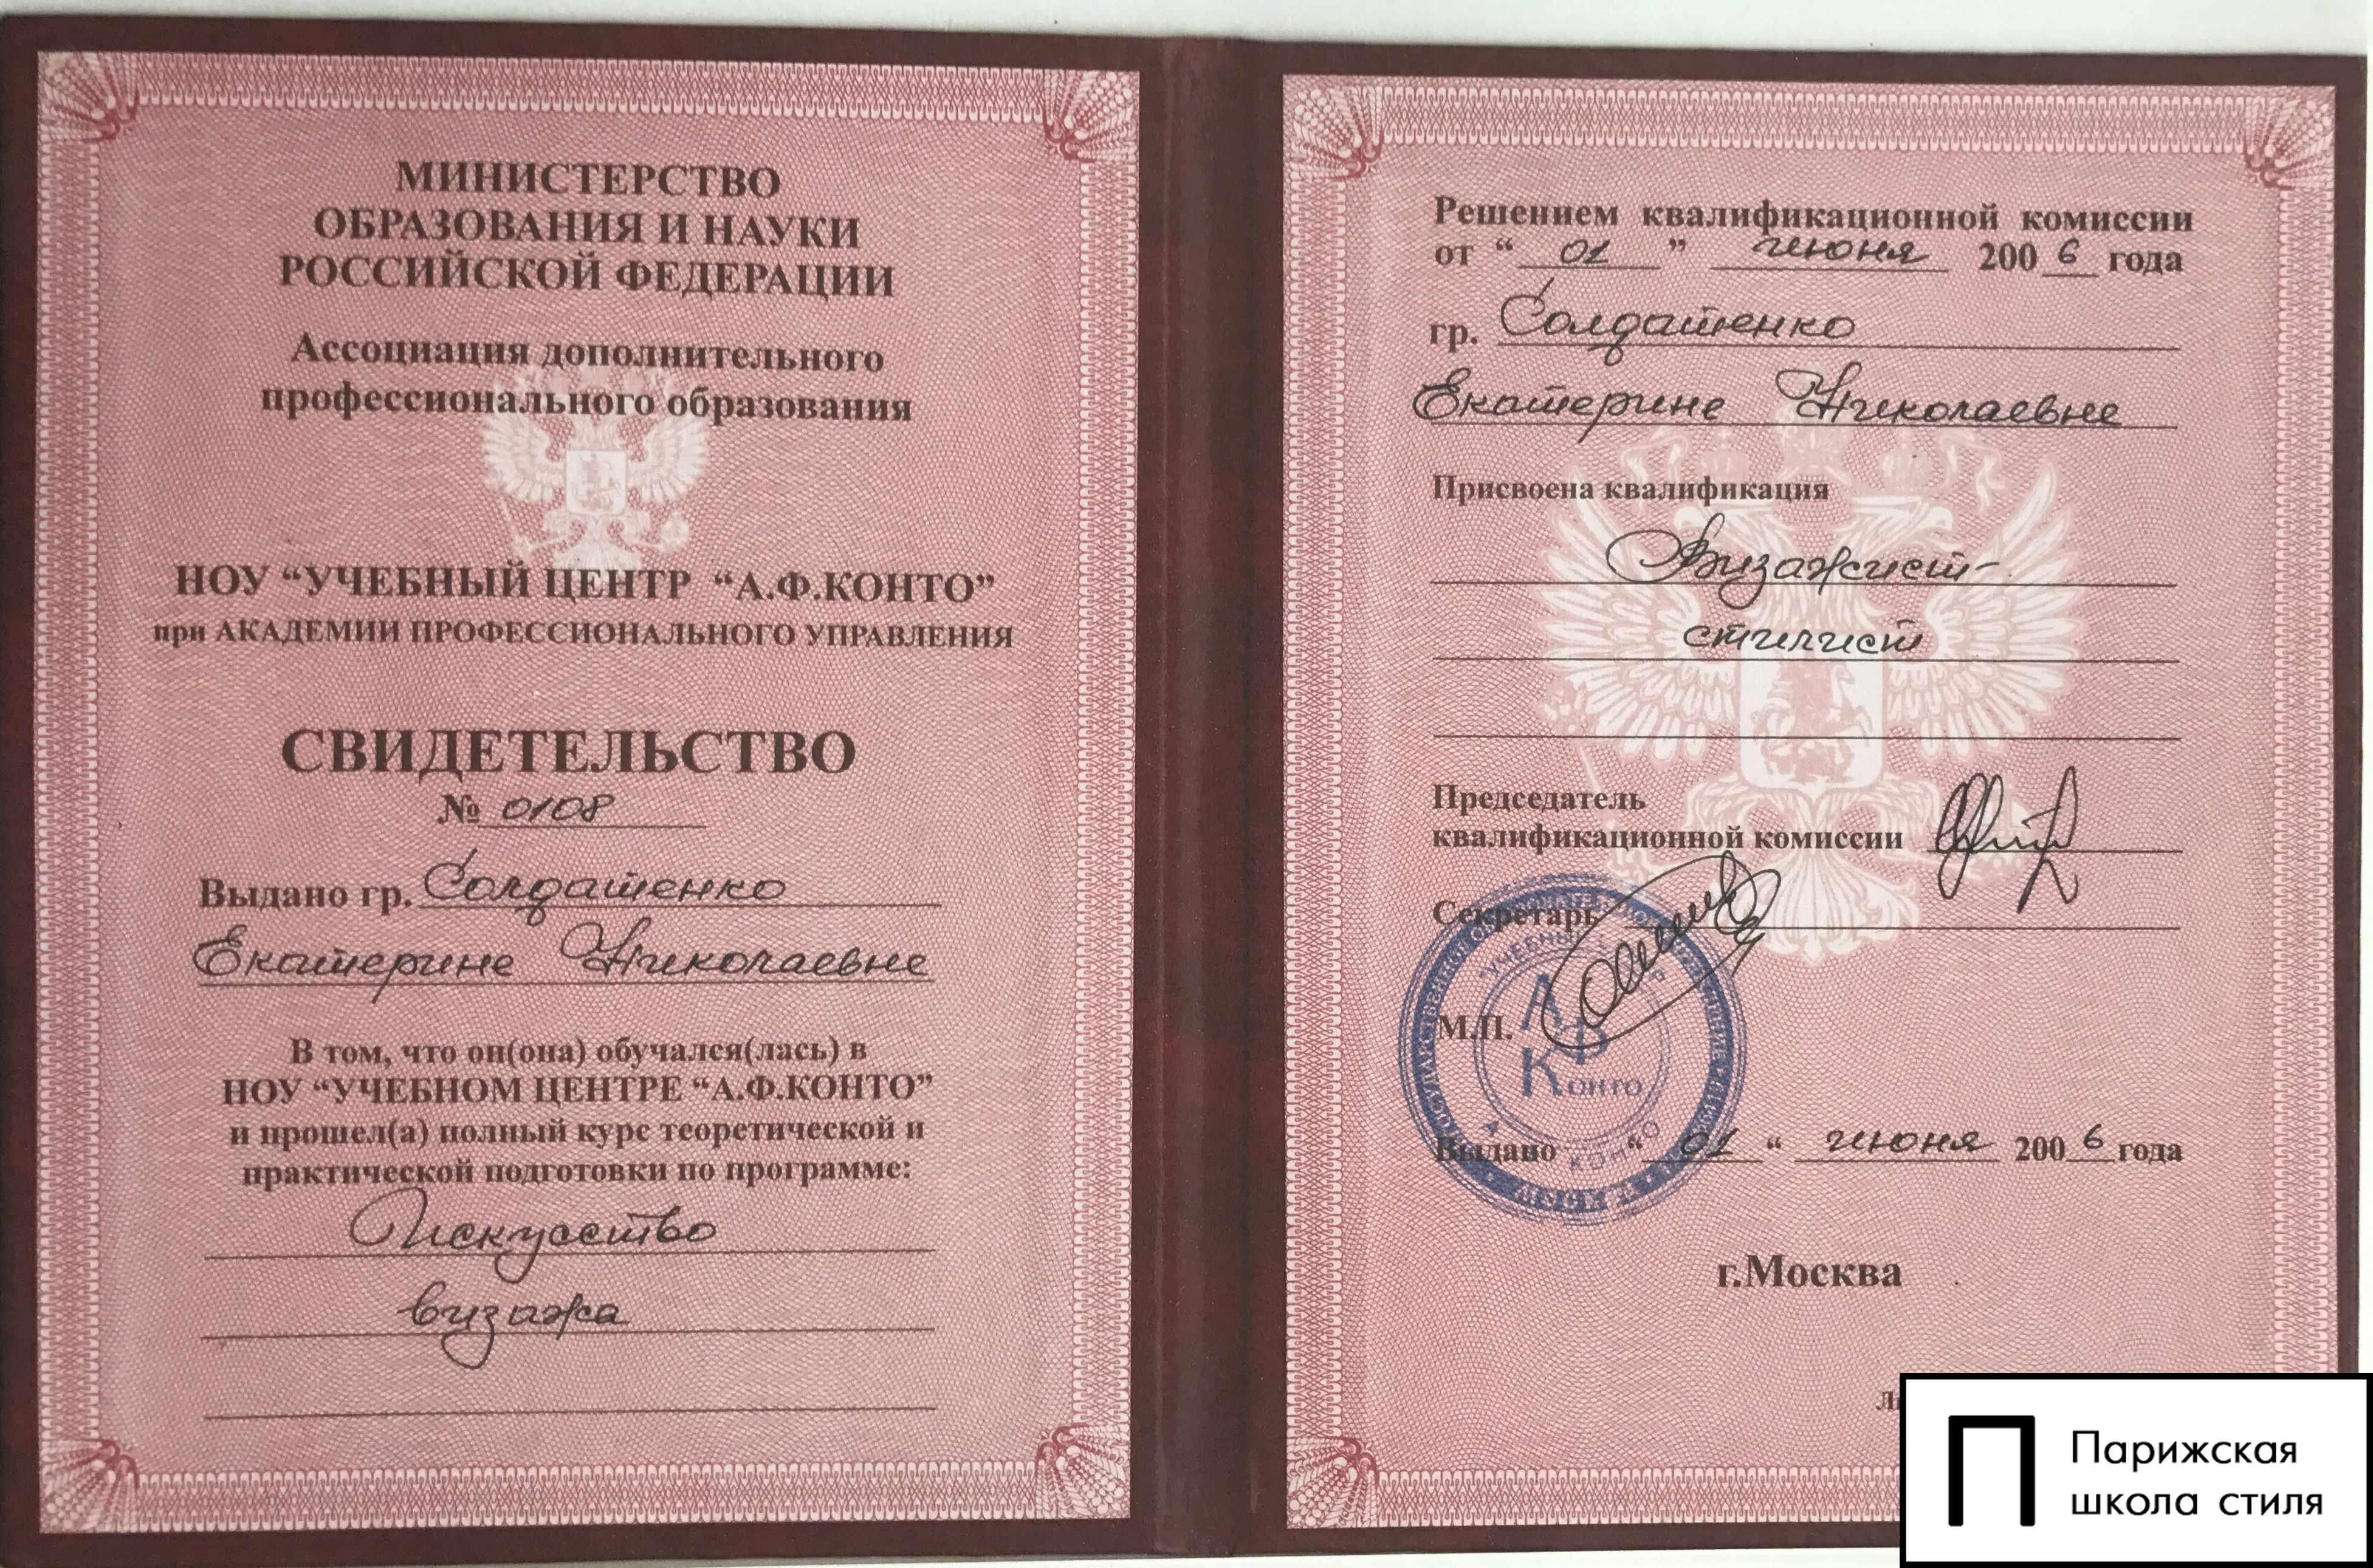 МИНИСТЕРСТВО
ОБРАЗОВАНИЯ И НАУКИ
РОССИЙСКОЙ ФЕДЕРАЦИИ
Ассоциация дополнительного
профессионального образования
НОУ “УЧЕБНЫЙ ЦЕНТР “А.Ф.КОНТО”
при АКАДЕМИИ ПРОФЕССИОНАЛЬНОГО УПРАВЛЕНИЯ
СВИДЕТЕЛЬСТВО
№ 0108
Выдано гр. Солдатенко
Екатерине Николаевне
В том, что он(она) обучался(лась) в
НОУ “УЧЕБНОМ ЦЕНТРЕ “А.Ф.КОНТО”
и прошел(а) полный курс теоретической и
практической подготовки по программе:
Искусство
визажа
Решением квалификационной комиссии
от “ 01 ” июня 2006 года
гр. Солдатенко
Екатерине Николаевне
Присвоена квалификация
Визажист-
стилист
Председатель
квалификационной комиссии
Секретарь
УЧЕБНЫЙ
А Ф
М.П.
Конто
Выдано “ 01 “ июня 2006 года
г.Москва
Парижская
школа стиля